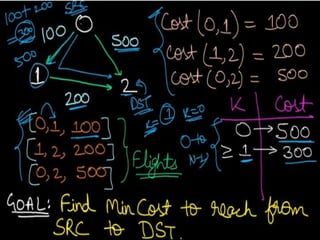 100+200
300
SRC
0
100
500
500
1
2
200
DST
Cost (0,1) = 100
Cost (1,2) = 200
Cost (0,2) = 500
[0, 1, 100]
[1, 2, 200]
[0, 2, 500]
Flights
K=1
K=0
0 to
N-1
K Cost
0 → 500
≥ 1 → 300
GOAL: Find Min Cost to reach from
SRC to DST.